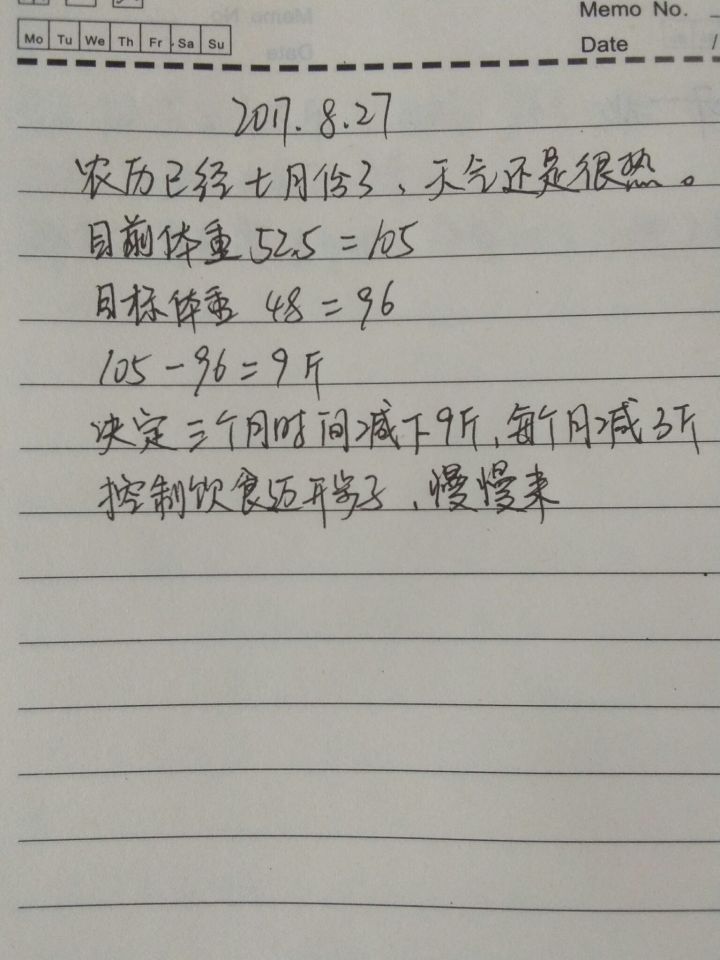 Memo No.
Mo Tu We Th Fr Sa Su
Date /
2017.8.27
农历已经七月份了、天气还是很热。
目前体重 52.5 = 105
目标体重 48 = 96
105 - 96 = 9斤
决定三个月时间减下9斤,每个月减3斤
控制饮食迈开步子、慢慢来